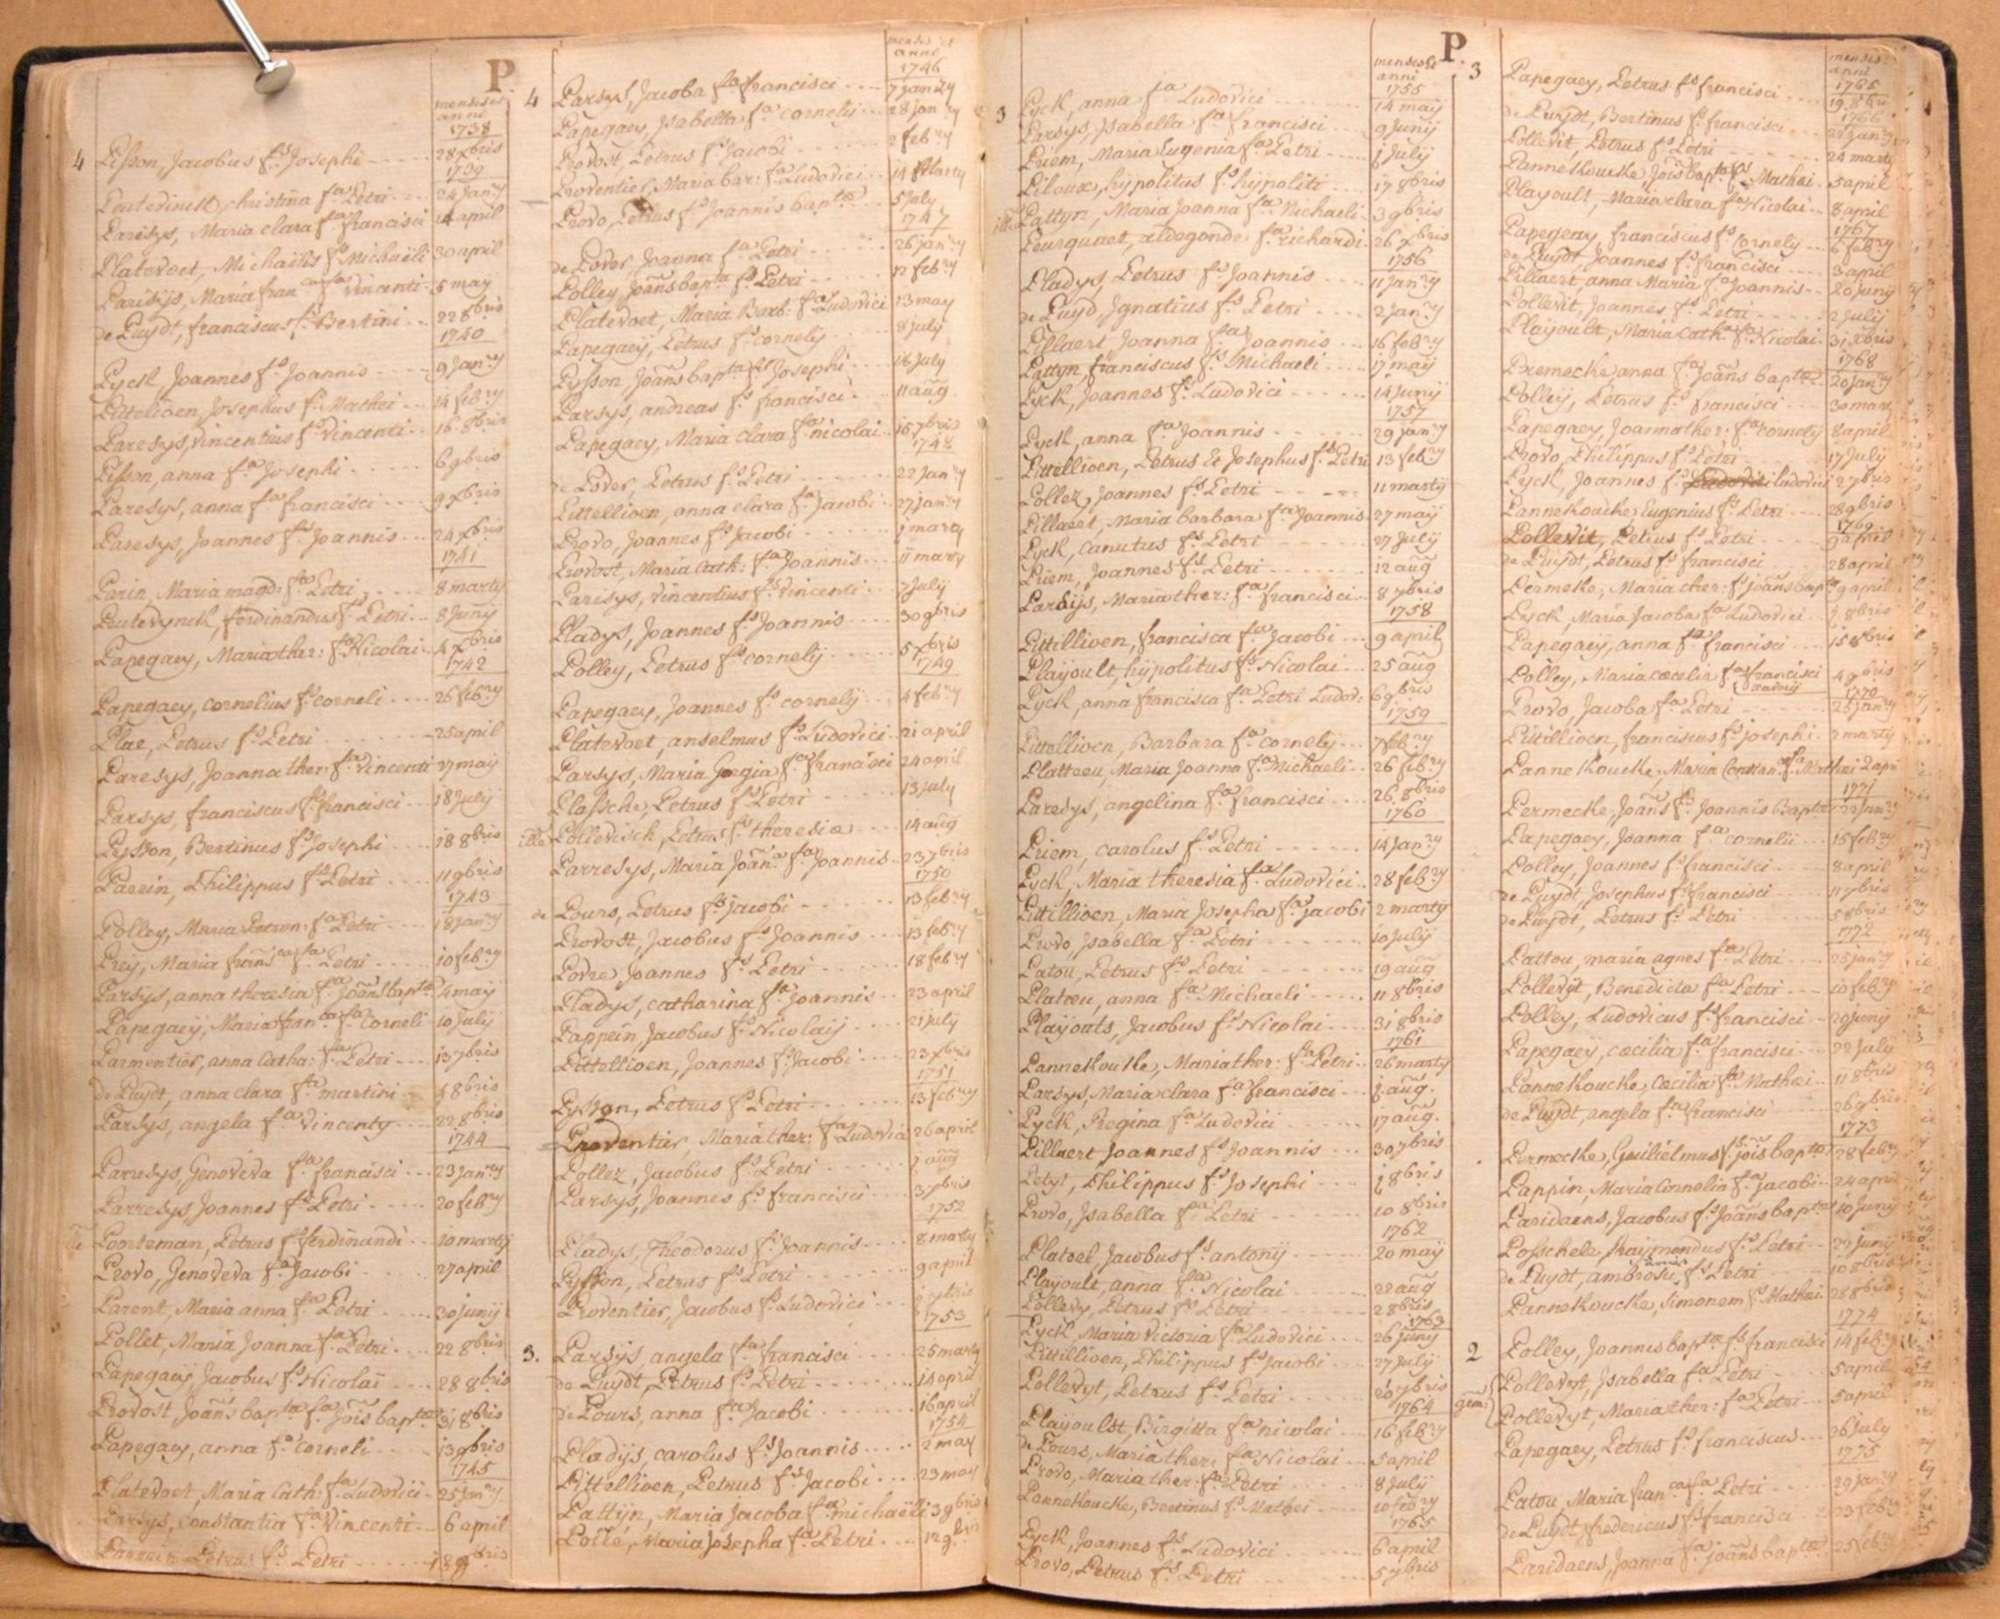 P.
menses et
anni
1738
4 Pisson, Jacobus fs Josephi 28 xbris
1739
Puutedinck christina fa Petri 24 Janry
Parisys, Maria clara fa francisci 14 april
Platevoet, Michailis fs Michaëli 30 april
Parisijs, Maria francca fa vincenti 5 may
de Puijdt, franciscus fs Bertini 22 8bris
1740
Pyck Joannes fs Joannis 9 Janry
Pittelioen, Josephus fs Mathei 14 febry
Paresys, vincentius fs vincenti 16 8bris
Pisson, anna fa Josephi 6 9bris
Paresys, anna fa francisci 9 xbris
Paresys, Joannes fs Joannis 24 xbris
1741
Parin, Maria magd: fa Petri 8 martij
Puutdynck, ferdinandus fs Petri 8 Junij
Papegaey, Maria ther: fa Nicolai 4 xbris
1742
Papegaey, cornelius fs corneli 26 febry
Plae, Petrus fs Petri 25 april
Paresys, Joanna ther: fa vincenti 27 maij
Parsys, franciscus fs francisci 18 July
Pysson, Bertinus fs Josephi 18 8bris
Parein, Philippus fs Petri 11 9bris
1743
Polley, Maria Petron: fa Petri 18 Janry
Preij, Maria franca fa Petri 10 febry
Parsys, anna theresia fa Joañs bapte 4 maij
Papegaeij, Maria franca fa Corneli 10 July
Parmentier, anna Catha: fa Petri 13 7bris
de Puydt, anna clara fa martini 5 8bris
Parsys, angela fa Vincenty 22 8bris
1744
Paresys Genoveva fa francisci 23 Janry
Parresys Joannes fs Petri 20 febry
Poorteman, Petrus fs ferdinandi 10 martij
Provo, Genoveva fa Jacobi 27 april
Parent, Maria anna fa Petri 30 junij
Pollet, Maria Joanna fa Petri 22 8bris
Papegaeij Jacobus fs Nicolaï 28 8bris
Provost Joañs bapta fs Joïs bapta 31 8bris
Papegaey, anna fa Corneli 13 9bris
1745
Platevoet, Maria Cath: fa Ludovici 25 Janry
Parsys, Constantia fa Vincenti 6 april
Parrein Petrus fs Petri
menses et
anni
1746
4 Parsys, Jacoba fa francisci 7 janry
Papegaey, Isabella fa cornelij 28 janry
Provost, Petrus fs Jacobi 2 febry
Proventier, Maria bar: fa Ludovici 14 Marty
Provo, Petrus fs Joannis bapte 5 July
1747
de Poder, Joanna fa Petri 26 janry
Polley Joañs bapta fs Petri 12 febry
Platevoet, Maria Barb: fa Ludovici 23 may
Papegaeij, Petrus fs cornelij 8 july
Pysson Joañs bapta fs Josephi 16 July
Parsys, andreas fs francisci 11 aug
Papegaey, Maria clara fa nicolai 15 7bris
1748
de Poder, Petrus fs Petri 22 Janry
Pittellioen, anna clara fa Jacobi 27 janry
Provo, Joannes fs Jacobi 1 marty
Provost, Maria Cath: fa Joannis 11 marty
Parisys, vincentius fs vincenti 7 july
Pladys, Joannes fs Joannis 30 9bris
Polley, Petrus fs cornelij 5 xbris
1749
Papegaey, Joannes fs cornelij 4 febry
Platevoet, anselmus fs Ludovici 21 april
Parsys, Maria Georgia fa francisci 24 april
Plassche, Petrus fs Petri 13 july
Pollevisch, Petrus fs theresia 14 aug
Parresys, Maria Joana fa Joannis 23 7bris
1750
de Pours, Petrus fs jacobi 13 febry
Provost, Jacobus fs Joannis 13 febry
Podre, Joannes fs Petri 18 febry
Pladys, catharina fa Joannis 23 april
Pappein, Jacobus fs Nicolaij 21 july
Pittellioen, Joannes fs Jacobi 23 xbris
1751
Pysson, Petrus fs Petri 13 febry
Proventier, Maria ther: fa Ludovici 26 april
Pollez, Jacobus fs Petri 7 aug
Parsys, Joannes fs francisci 3 7bris
1752
Pladys, Theodorus fs Joannis 8 marty
Pysson, Petrus fs Petri 9 april
Proventier, Jacobus fs Ludovici
1753
3. Parsys, angela fa francisci 25 marty
de Puydt, Petrus fs Petri 14 april
de Pours, anna fa Jacobi 16 april
1754
Pladijs, carolus fs Joannis 2 may
Pittellioen, Petrus fs Jacobi 23 may
Pattijn, Maria Jacoba fa michaëli 3 9bris
Pollé, Maria Josepha fa Petri 12 9bris
P.
menses et
anni
1755
3 Pyck, anna fa Ludovici 14 maij
Persys, Isabella fa francisci 9 Junij
Priem, Maria Eugenia fa Petri 1 July
Piloux, hypolitus fs hypoliti 17 8bris
Pattyn, Maria Joanna fa Michaeli 3 9bris
Peurquaet, aldegonde fa richardi 26 xbris
1756
Pladys, Petrus fs Joannis 11 janry
de Puyd, Ignatius fs Petri 2 janry
Pillaert Joanna fa Joannis 16 febry
Pattyn franciscus fs Michaeli 17 maij
Pyck, Joannes fs Ludovici 14 Junij
1757
Pyck, anna fa Joannis 29 janry
Pittellioen, Petrus et Josephus fs Petri 13 febry
Pollez, Joannes fs Petri 11 martij
Pillaert, Maria barbara fa Joannis 27 maij
Pyck, Canutus fs Petri 27 July
Priem, Joannes fs Petri 12 aug
Parsijs, Maria ther: fa francisci 8 7bris
1758
Pittillioen, francisca fa Jacobi 9 april
Playoult, hijpolitus fs Nicolai 25 aug
Pyck, anna francisca fa Petri Ludov: 6 9bris
1759
Pittellioen, Barbara fa cornelij 7 febry
Platteeu, Maria Joanna fa Michaeli 26 febry
Paresys, angelina fa francisci 26 8bris
1760
Priem, carolus fs Petri 14 janry
Pyck, Maria theresia fa Ludovici 28 febry
Pittillioen, Maria Josepha fa jacobi 2 martij
Provo, Isabella fa Petri 10 July
Patou, Petrus fs Petri 19 aug
Plateeu, anna fa Michaeli 11 8bris
Playouts, Jacobus fs Nicolai 31 8bris
1761
Pannekoucke, Maria ther: fa Petri 26 marty
Parsys, Maria clara fa francisci aug.
Pyck, Regina fa Ludovici 17 aug.
Pillaert Joannes fs Joannis 30 7bris
Petyt, Philippus fs Josephi 8bris
Provo, Isabella fa Petri 10 8bris
1762
Plateel Jacobus fs antonij 20 maij
Playoult, anna fa Nicolai 22 aug
Pollevy, Petrus fs Petri 28 bris
1763
Pyck, Maria victoria fa Ludovici 26 Junij
Pittillioen, Philippus fs Jacobi 27 July
Pollevyt, Petrus fs Petri 20 7bris
1764
Playoultt, Birgitta fa nicolai 16 febry
de Pours, Maria ther: fa Nicolai 5 april
Provo, Maria ther: fa Petri 8 July
Pannekoucke, Bertinus fs Mathei 10
1765
Pyck, Joannes fs Ludovici 6 april
Provo, Petrus fs Petri 5 7bris
menses
anni
1765
3 Papegaey, Petrus fs francisci 19 8bris
1766
de Puydt, Bertinus fs francisci 22 janry
Pollevit, Petrus fs Petri 24 marty
Pannekoucke Jois bapta fs Mathei 5 april
Playoult, Maria clara fa Nicolai 8 april
1767
Papegeay franciscus fs Cornely 6 febry
de Puydt Joannes fs francisci 3 april
Pillaert, anna Maria fa Joannis 20 junij
Pollevit, Joannes fs Petri 2 Julij
Playoult, Maria Catha fa Nicolai 31 xbris
1768
Premecke anna fa Joañs bapta 20 janry
Polleij, Petrus fs francisci 30 mart
Papegaey, Joanna ther: fa Cornely 8 april
Provo, Philippus fs Petri 17 July
Pyck, Joannes fs ludovici 27 bris
Pannekoucke Eugenius fs Petri 28 9bris
1769
Pollevit, Petrus fs Petri 9 april
de Puydt, Petrus fs francisci 28 april
Permeke, Maria ther: fa Joañs bapta 9 april
Pyck, Maria Jacoba fa Ludovici 8bris
Papegaeij, anna fa francisci 15 8bris
Polley, Maria cœcilia fa francisci 4 9bris
1770
Provo, Jacoba fa Petri 26 janry
Pittillioen, franciscus fs josephi 2 martij
Pannekoucke, Maria Constan: fa Mathei 2 apri
1771
Permecke, Joañs fs Joannis Bapta 22 Janry
Papegaey, Joanna fa Cornelii 15 febry
Polley, Joannes fs francisci 8 april
de Puydt, Josephus fs francisci 11 7bris
de Puydt, Petrus fs Petri 5 8bris
1772
Pattou, maria agnes fa Petri 25 janry
Pollevyt, Benedicta fa Petri 10 febry
Polley, Ludovicus fs francisci 20 junij
Papegaeij, cœcilia fa francisci 22 July
Pannekoucke, Cœcilia fa Mathei 11 8bris
de Puydt, angela fa francisci 26 9bris
1773
Permecke, Guilielmus fs Joïs bapta 28 febry
Pappin, Maria Cornelia fa Jacobi 24 april
Paridaens, Jacobus fs Joañs bapta 10 Junij
Posschele Raijmondus fs Petri 22 Junij
de Puydt, ambrosi fs Petri 10 8bris
Pannekoucke, Simonem fs Mathei 28 8bris
1774
2 Polley, Joannes bapta fs francisci 14 febry
gem: Pollevyt, Isabella fa Petri 5 april
Pollevyt, Maria ther: fa Petri 5 april
Papegaey, Petrus fs franciscus 26 July
1775
Patou Maria franca fa Petri 29 janry
de Puydt, fredericus fs francisci 23 febry
Paridaens, Joanna fa joañs bapta 25 febry